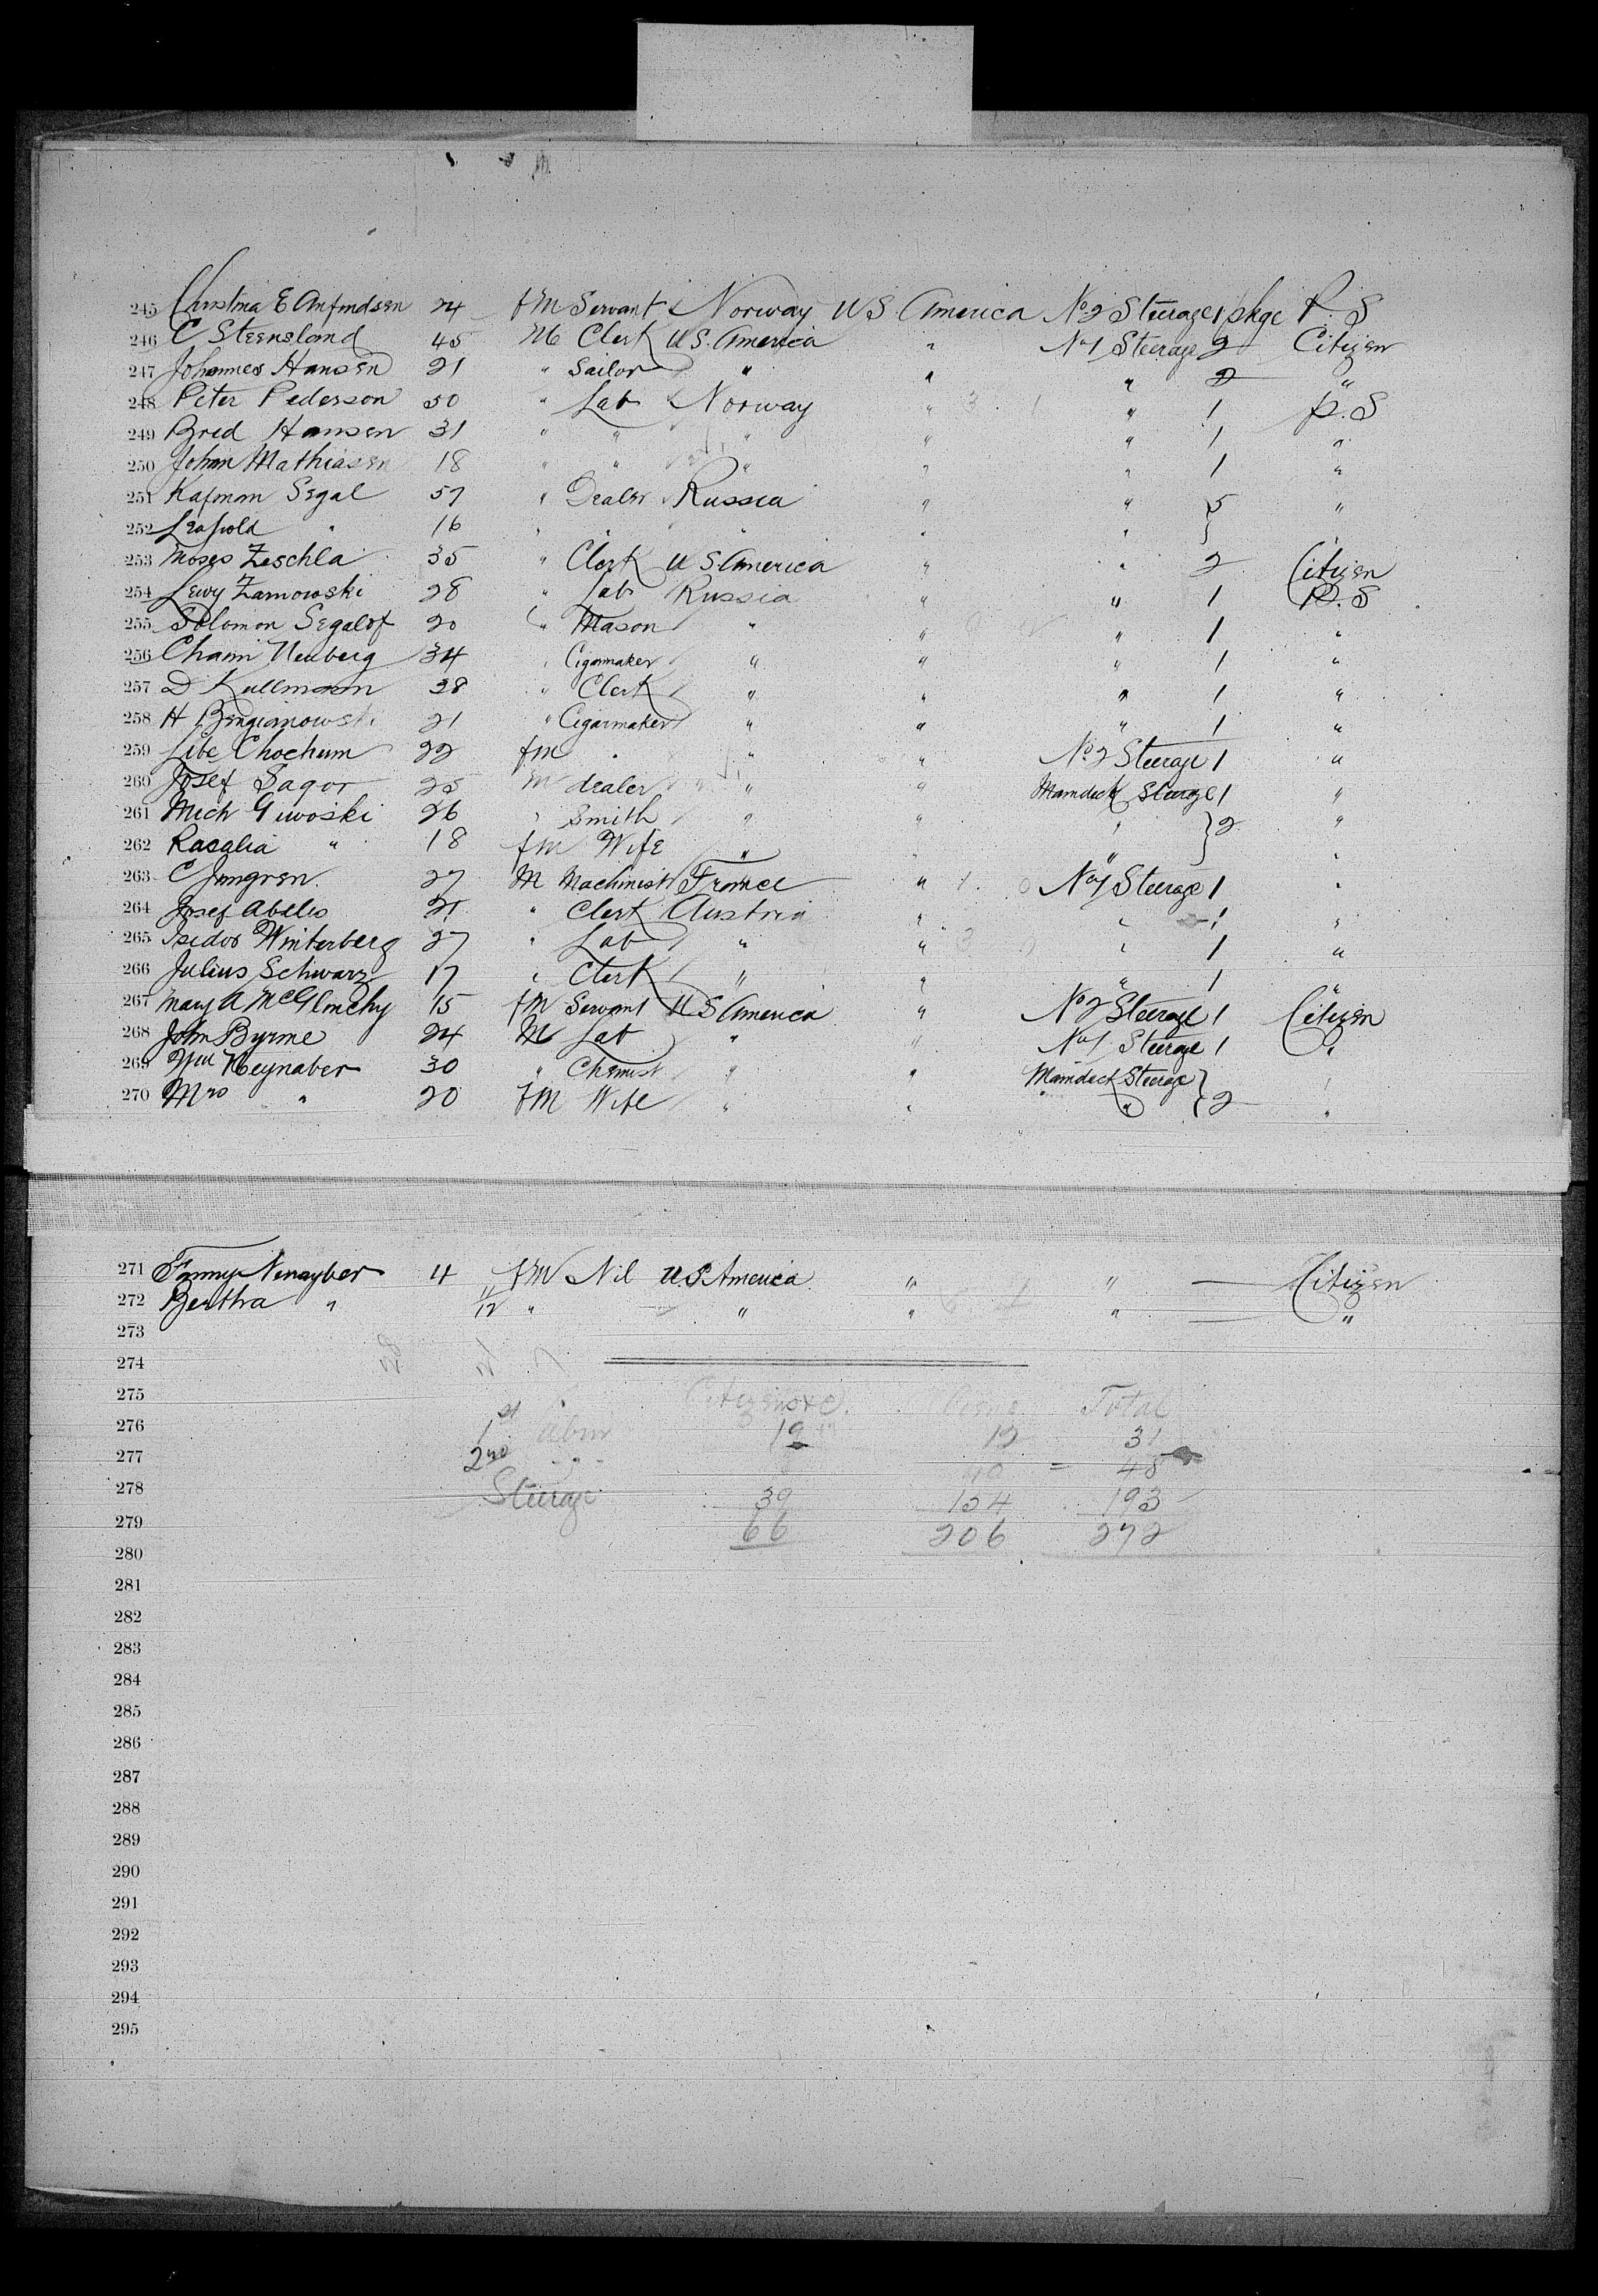 245 Christina E Amfindsen 24 fm Servant Norway U S. America No 2 Steerage 1 pkge P. S
246 C Steensland 45 M Clerk U S. America " No 1 Steerage 2 Citizen
247 Johannes Hansen 21 " Sailor " " " 2 "
248 Peter Pederson 50 " Lab Norway " " 1 P. S
249 Bred Hansen 31 " " " " " 1 "
250 Johan Mathiasen 18 " " " " " 1 "
251 Kalman Segal 57 " Dealer Russia " " 5 "
252 Leopold " 16 " " " " " } "
253 Moses Zeschla 35 " Clerk U S. America " " 2 Citizen
254 Lewy Zarnowski 28 " Lab Russia " " 1 P. S
255 Solomon Segalof 20 " Mason " " " 1 "
256 Chaim Neuberg 34 " Cigarmaker " " " 1 "
257 D Kullmann 28 " Clerk " " " 1 "
258 H 21 " Cigarmaker " " " 1 "
259 Libe Chochum 22 fm " " " No 2 Steerage 1 "
260 Josef Sagor 25 M dealer " " Maindeck Steerage 1 "
261 Mich Giwoski 26 " Smith " " " } 2 "
262 Rasalia " 18 fm Wife " " " "
263 C Jungren 27 M Machinist France " No 1 Steerage 1 "
264 Josef Abeles 21 " Clerk Austria " " 1 "
265 Isidor Winterberg 27 " Lab " " " 1 "
266 Julius Schwarz 17 " Clerk " " " 1 "
267 Mary A McGlinchy 15 fm Servant U S America " No 2 Steerage 1 Citizen
268 John Byrne 24 M Lab " " No 1 Steerage 1 "
269 Wm Neynaber 30 " Chemist " " Maindeck Steerage } "
270 Mrs " 20 fm Wife " " " } 2 "
271 Fanny Nenayber 4 fm Nil U S America " " — Citizen
272 Bertha " 11/12 " " " " — "
273
274
275 Total
276 1st 19 12 31
277 2nd " 40 = 48
278 Steerage 39 154 193
279 66 206 272
280
281
282
283
284
285
286
287
288
289
290
291
292
293
294
295